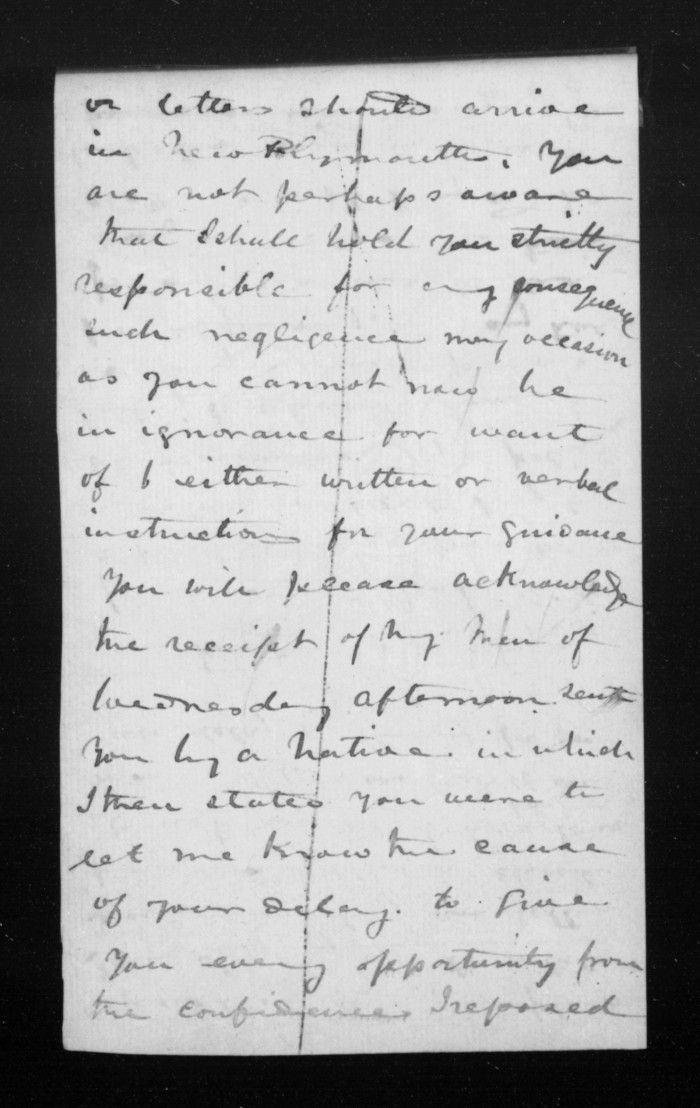 or letters should arrive
in New Plymouth. You
are not perhaps aware
that I shall hold you strictly
responsible for any consequence
such negligence may occasion
as you cannot now be
in ignorance for want
of either written or verbal
instruction for your guidance
You will please acknowledge
the receipt of my Mem of
Wednesday afternoon sent
you by a Native in which
I then stated you were to
let me know the cause
of your delay. to give
you every opportunity from
the confidence I reposed